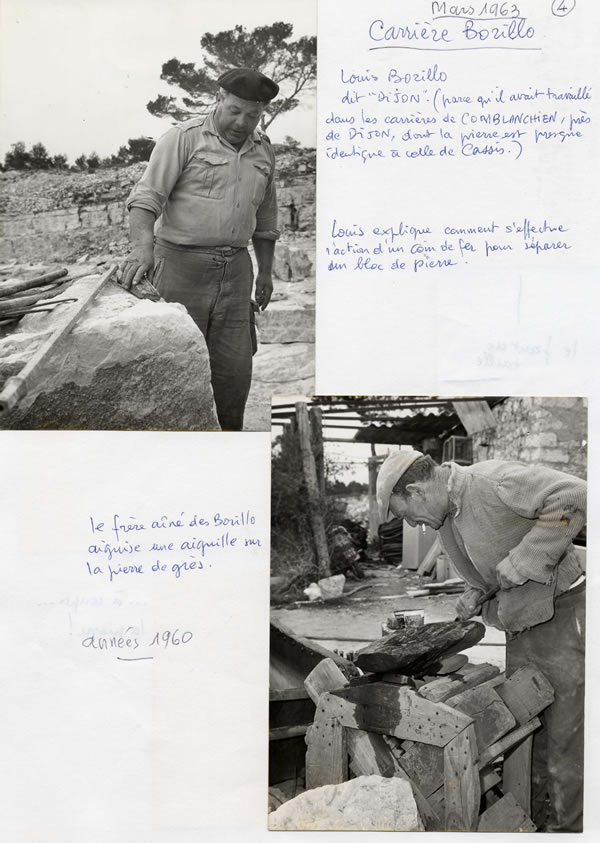 Mars 1963
4
Carrière Bozillo
Louis Bozillo
dit "DIJON". (parce qu'il avait travaillé
dans les carrières de COMBLANCHIEN, près
de DIJON, dont la pierre est presque
identique à celle de Cassis.)
Louis explique comment s'effectue
l'action d'un coin de fer pour séparer
un bloc de pierre.
le frère aîné des Bozillo
aiguise une aiguille sur
la pierre de grès.
années 1960